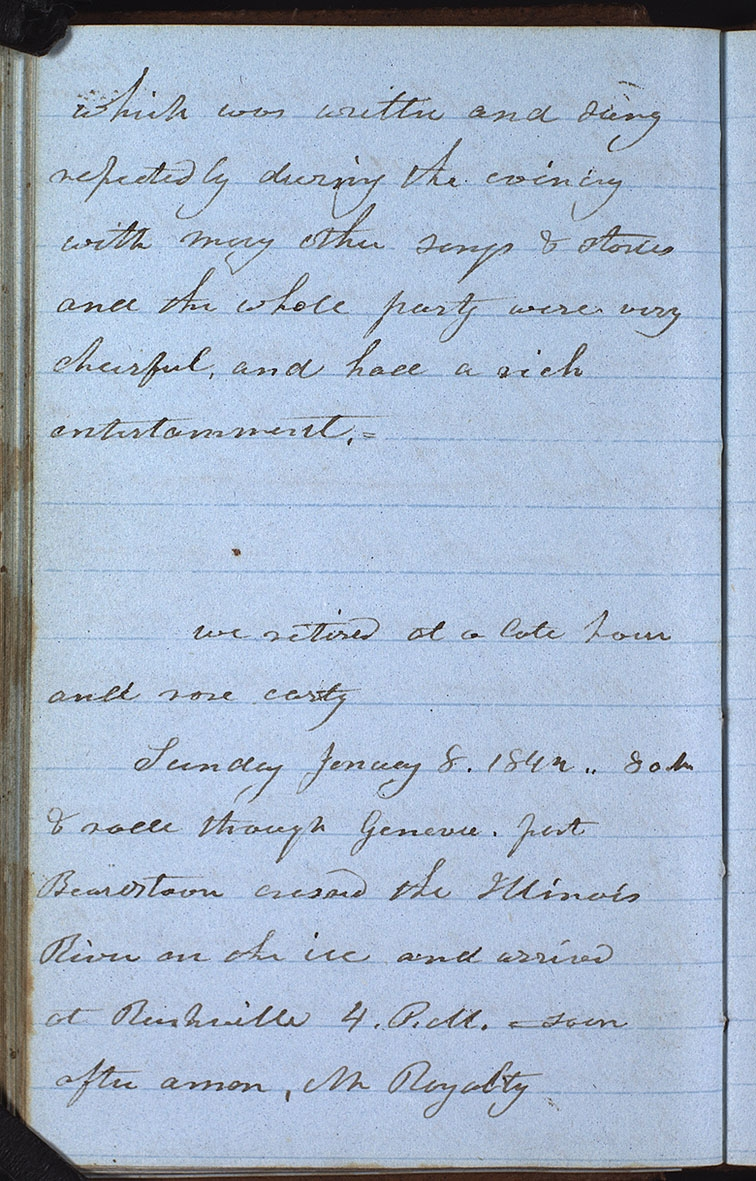 which was written and sung
repeatedly during the evening
with many other songs & stories
and the whole party were very
cheerful, and had a rich
entertainment.=
we retired at a late hour
and rose early
Sunday January 8. 1842..
& rode through Geneva. past
Beardstown crossed the Illinois
River on the ice and arrived
at Rushville 4. P.M. = soon
after a man, Mr Royalty